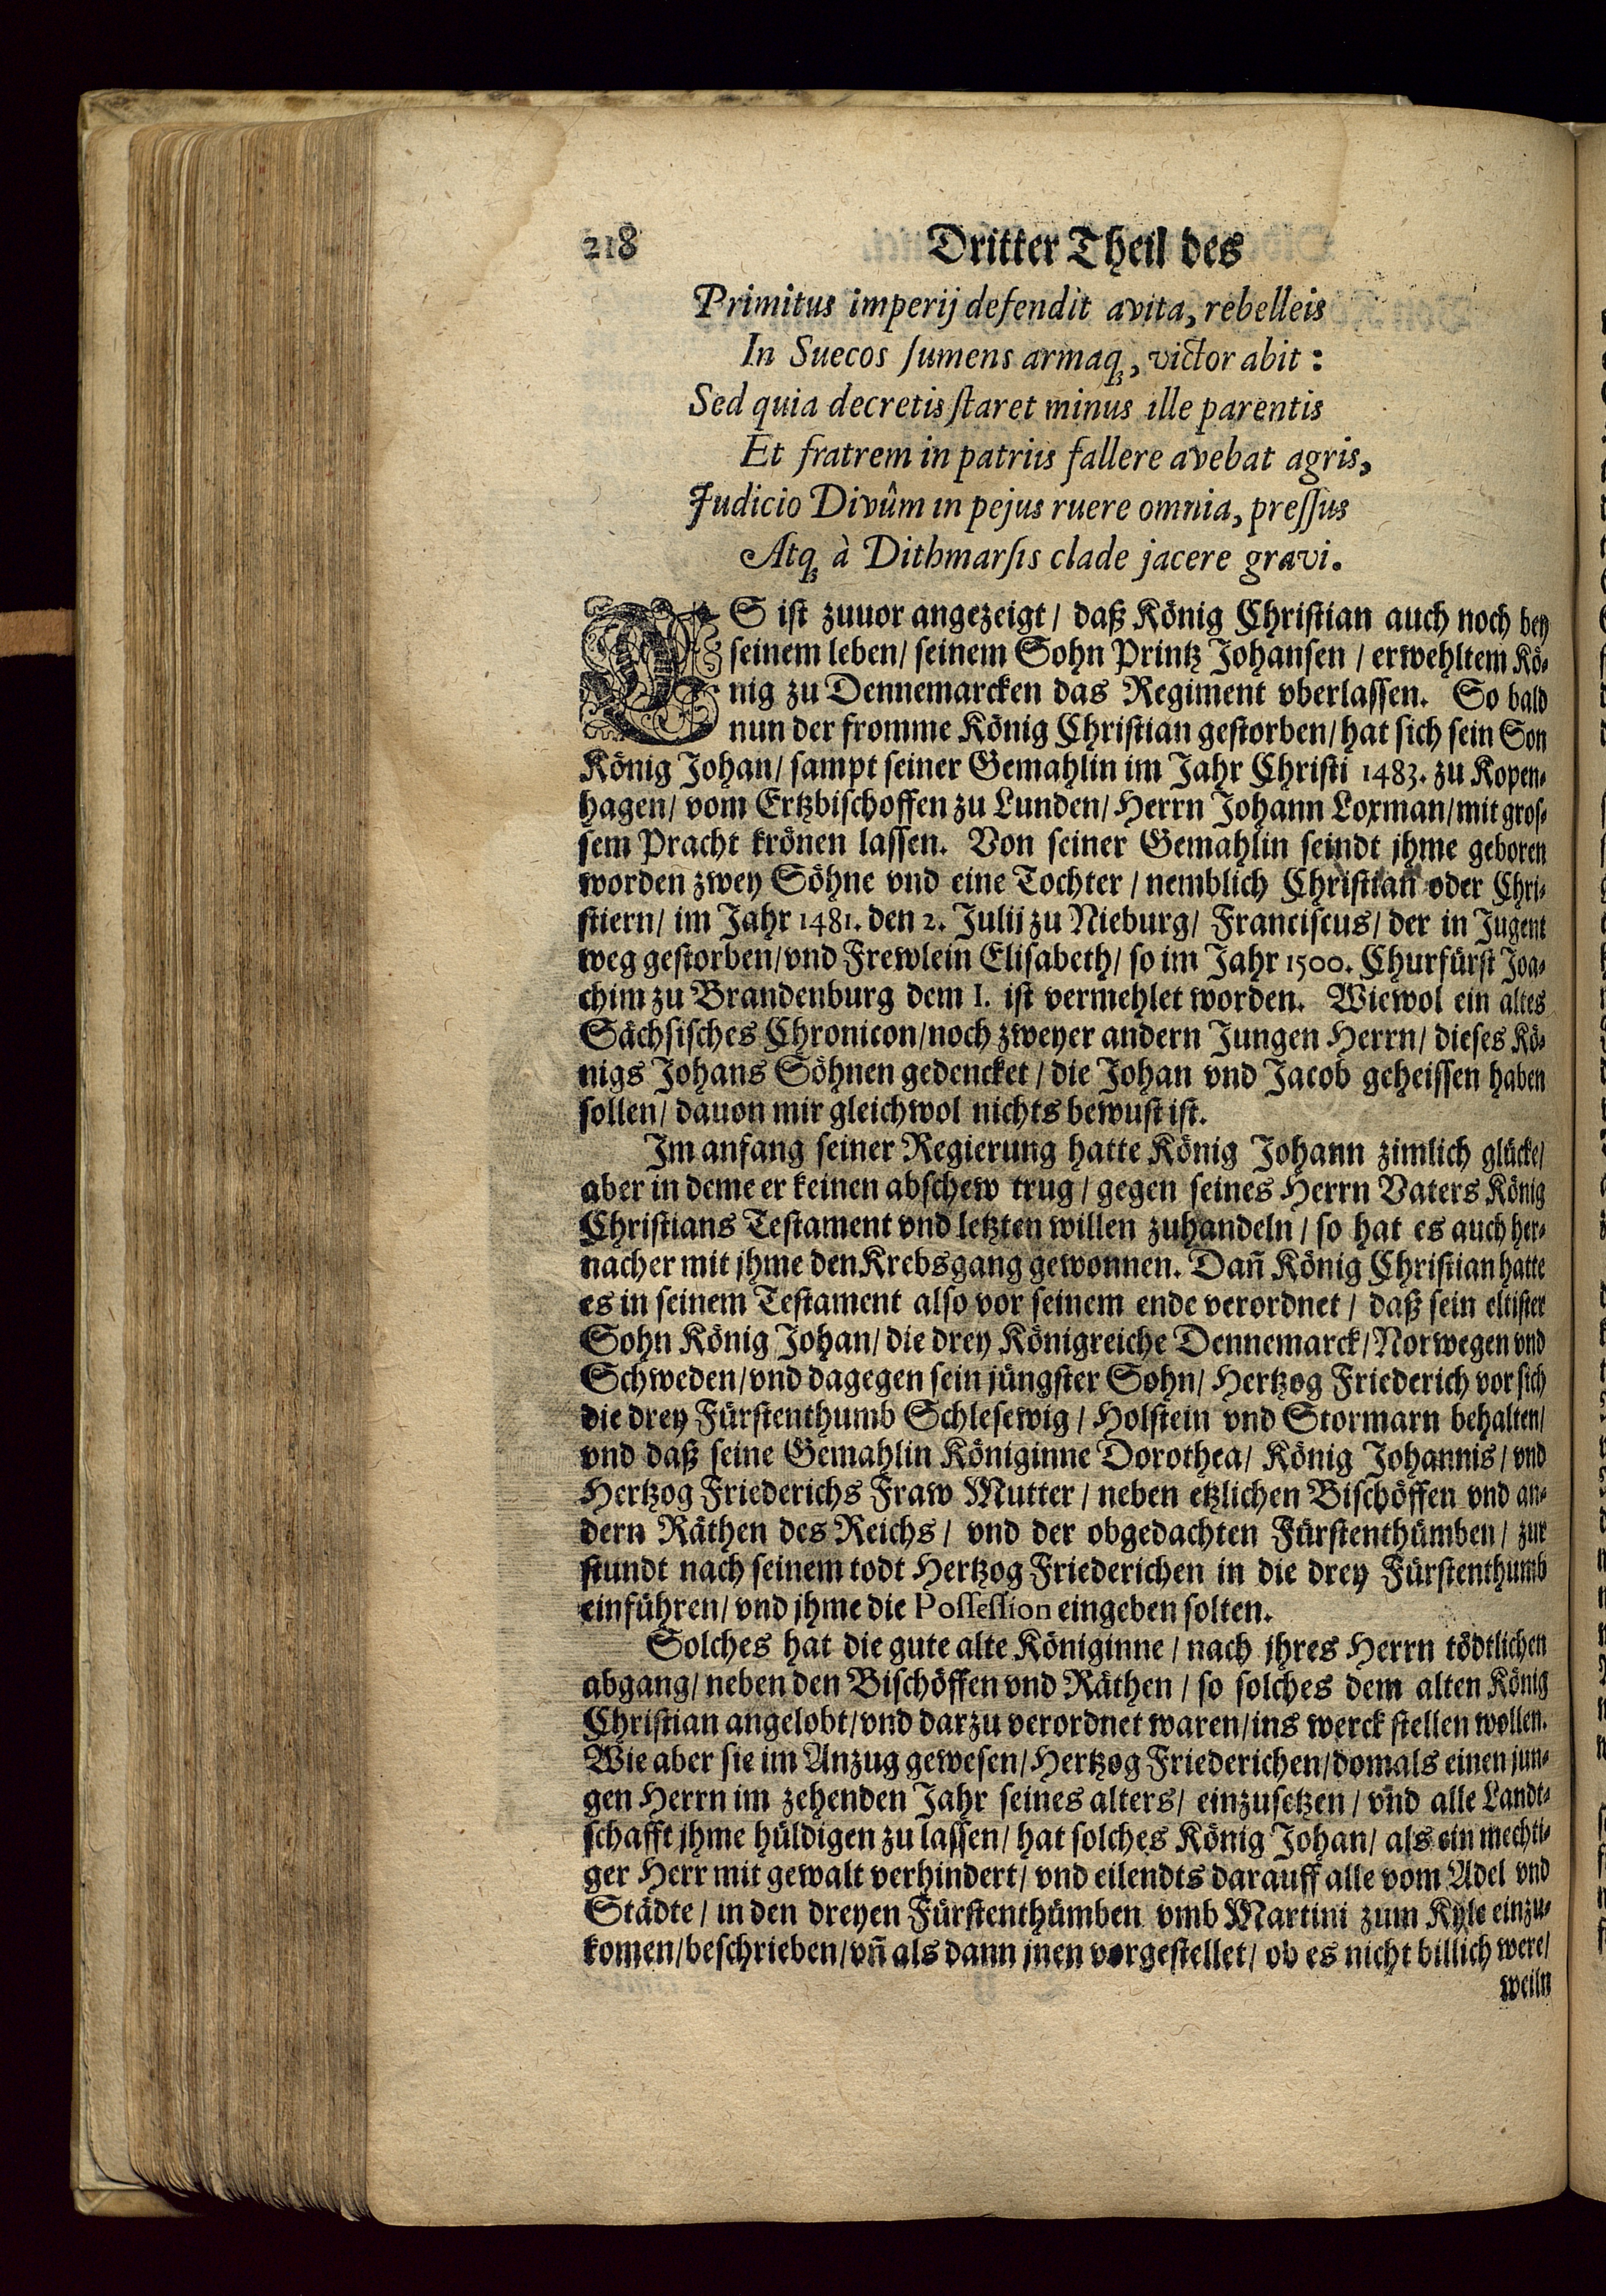 218 Dritter Theil des
Primitus imperij defendit avita, rebelleis
In Suecos sumens armaq;, victor abit:
Sed quia decretis staret minus ille parentis
Et fratrem in patriis fallere avebat agris,
Judicio Divûm in pejus ruere omnia, pressus
Atq; à Dithmarsis clade jacere gravi.
ES ist zuuor angezeigt / daß König Christian auch noch bey
seinem leben / seinem Sohn Printz Johansen / erwehltem Kö-
nig zu Dennemarcken das Regiment vberlassen. So bald
nun der fromme König Christian gestorben / hat sich sein Son
König Johan / sampt seiner Gemahlin im Jahr Christi 1483. zu Kopen-
hagen / vom Ertzbischoffen zu Lunden / Herrn Johann Loxman / mit gros-
sem Pracht krönen lassen. Von seiner Gemahlin seindt jhme geboren
worden zwey Söhne vnd eine Tochter / nemblich Christian oder Chri-
stiern / im Jahr 1481. den 2. Julij zu Nieburg / Franciscus / der in Jugent
weg gestorben / vnd Frewlein Elisabeth / so im Jahr 1500. Churfürst Joa-
chim zu Brandenburg dem I. ist vermehlet worden. Wiewol ein altes
Sächsisches Chronicon / noch zweyer andern Jungen Herrn / dieses Kö-
nigs Johans Söhnen gedencket / die Johan vnd Jacob geheissen haben
sollen / dauon mir gleichwol nichts bewust ist.
Im anfang seiner Regierung hatte König Johann zimlich glücke /
aber in deme er keinen abschew trug / gegen seines Herrn Vaters König
Christians Testament vnd letzten willen zuhandeln / so hat es auch her-
nacher mit jhme den Krebsgang gewonnen. Dañ König Christian hatte
es in seinem Testament also vor seinem ende verordnet / daß sein eltister
Sohn König Johan / die drey Königreiche Dennemarck / Norwegen vnd
Schweden / vnd dagegen sein jüngster Sohn / Hertzog Friederich vor sich
die drey Fürstenthumb Schlesewig / Holstein vnd Stormarn behalten /
vnd daß seine Gemahlin Königinne Dorothea / König Johannis / vnd
Hertzog Friederichs Fraw Mutter / neben etzlichen Bischöffen vnd an-
dern Räthen des Reichs / vnd der obgedachten Fürstenthümben / zur
stundt nach seinem todt Hertzog Friederichen in die drey Fürstenthumb
einführen / vnd jhme die Possession eingeben solten.
Solches hat die gute alte Königinne / nach jhres Herrn tödtlichen
abgang / neben den Bischöffen vnd Räthen / so solches dem alten König
Christian angelobt / vnd darzu verordnet waren / ins werck stellen wollen.
Wie aber sie im Anzug gewesen / Hertzog Friederichen / domals einen jun-
gen Herrn im zehenden Jahr seines alters / einzusetzen / vnd alle Landt-
schafft jhme huldigen zu lassen / hat solches König Johan / als ein mechti-
ger Herr mit gewalt verhindert / vnd eilendts darauff alle vom Adel vnd
Städte / in den dreyen Fürstenthümben vmb Martini zum Kyle einzu-
komen / beschrieben / vñ als dann jnen vorgestellet / ob es nicht billich were /
weiln